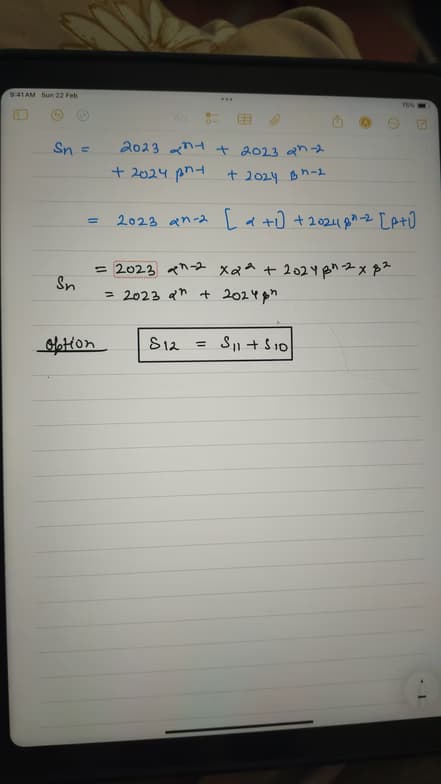 9:41 AM Sun 22 Feb
76%
Sn = 2023 αⁿ⁻¹ + 2023 αⁿ⁻²
+ 2024 βⁿ⁻¹ + 2024 βⁿ⁻²
= 2023 αⁿ⁻² [α +1] + 2024 βⁿ⁻² [β+1]
= 2023 αⁿ⁻² × α² + 2024 βⁿ⁻² × β²
Sn
= 2023 αⁿ + 2024 βⁿ
option S12 = S11 + S10